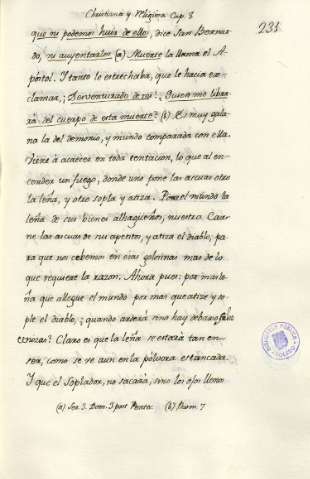 Christiana y Religiosa Cap. 8
231
que ni podemos huir de ellos, dice San Bernar-
do, ni auyentarlos (a) Muerte la llama el A-
póstol. Y tanto le estrechaba, que le hacia ex-
clamar, ¡Desventurado de mi! ¿Quien me libra-
rá del cuerpo de esta muerte? (b) Es muy gala-
na la del demonio, y mundo comparada con ella.
Viene á acaecer en toda tentacion, lo que al en-
cender un fuego, donde uno pone las ascuas otro
la leña, y otro sopla y atiza. Pone el mundo la
leña de sus bienes alhagueños, nuestra Car-
ne las ascuas de su apetito, y atiza el diablo, pa-
ra que nos cebemos en esas golosinas mas de lo
que requiere la razon. Ahora pues: por mas le-
ña que allegue el mundo por mas que atize y so-
ple el diablo, ¿quando arderá sino hay debaxo
Claro es que la leña se estará tan en-
tera, como se ve aun en la pólvora estancada.
Y que el Soplador, no sacará, sino los ojos llenos
(a) Ser. 5. Dom. 1 post Penta. (b) Rom. 7